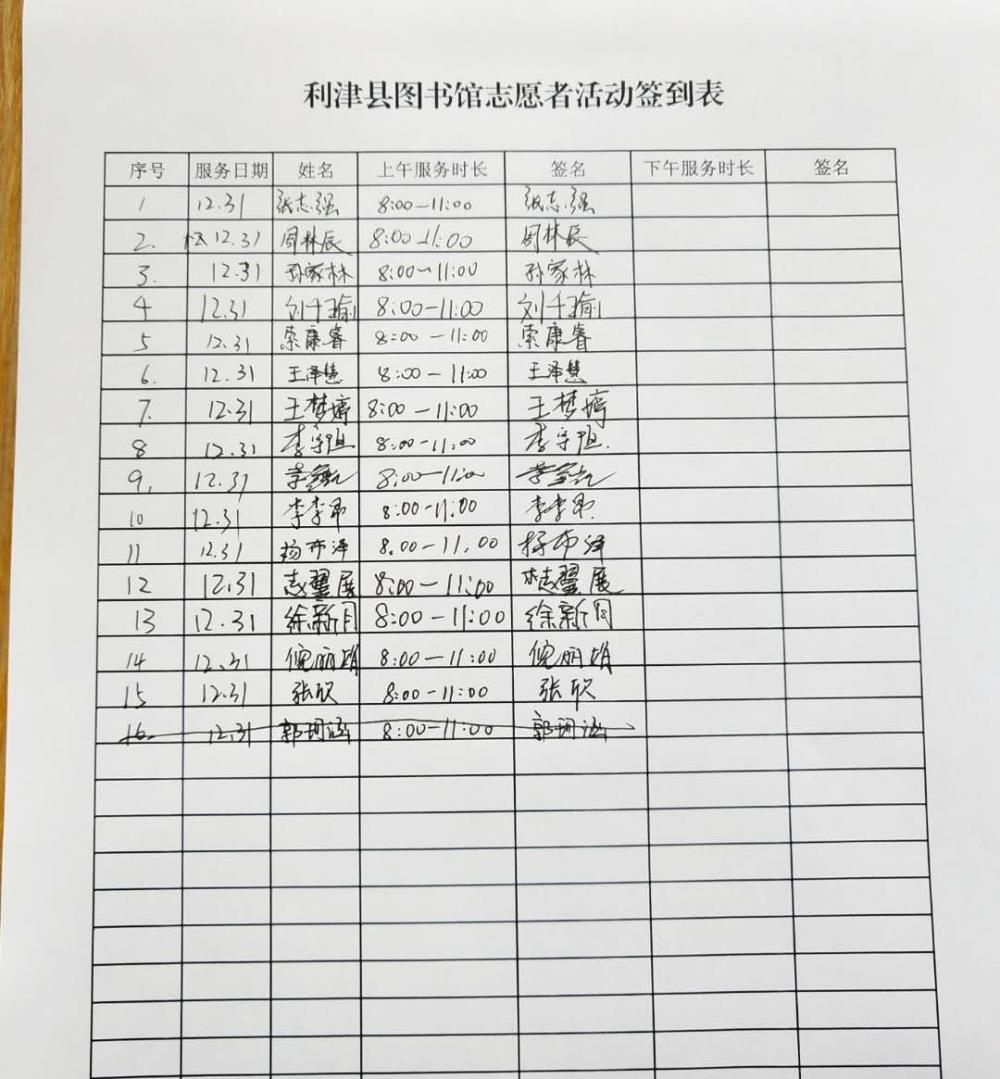 利津县图书馆志愿者活动签到表
序号 服务日期 姓名 上午服务时长 签名 下午服务时长 签名
1 12.31 张志强 8:00-11:00 张志强
2. 12.31 周林辰 8:00-11:00 周林辰
3. 12.31 孙家林 8:00-11:00 孙家林
4 12.31 刘千瑜 8:00-11:00 刘千瑜
5 12.31 索康睿 8:00-11:00 索康睿
6. 12.31 王泽慧 8:00-11:00 王泽慧
7. 12.31 王梦婷 8:00-11:00 王梦婷
8 12.31 8:00-11:00
9. 12.31 8:00-11:00
10 12.31 8:00-11:00
11 12.31 杨布泽 8.00-11.00 杨布泽
12 12.31 8:00-11:00
13 12.31 徐新月 8:00-11:00 徐新月
14 12.31 倪丽娟 8:00-11:00 倪丽娟
15 12.31 张欣 8:00-11:00 张欣
16. 12.31 郭珂涵 8:00-11:00 郭珂涵